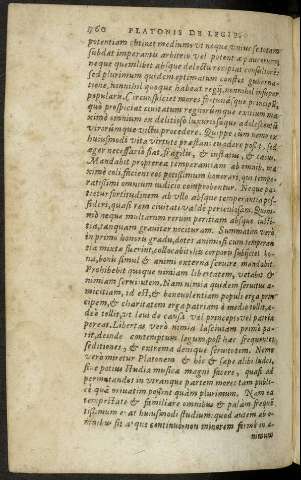 760 PLATONIS DE LEGIB.
potentiam obtinet medium: ut neque unius se totam
subdat imperantis arbitrio vel potentæ paucorum,
neque quemlibet absque delectu recipiat
sed plurimum quidem optimatum constet guberna-
tione, nonnihil quoque habeat regij, nonnihil insuper
popularis. Circunspiciet mores
quò prospiciat civitatum regnorumque exitium ma-
ximè omnium ex delitijs luxurijs
virorumque victu procedere. Quippe cùm nemo ex
huiusmodi vita virtute præstans evadere possit, sed
ager necessariò fiat, segnis, & iniustus, &
Mandabit propterea temperantiam ab omnib. ma-
ximè coli, sicientes eos potissimum honorari, qui tempe-
ratissimi omnium iudicio comprobentur. Neque pa-
tietur fortitudinem ab ullo absque temperantia pos-
sideri, quasi rem civitati valde perniciosam. Quini-
mò neque multarum rerum peritiam absque iusti-
tia, tanquam graviter nocituram. Summatim verò
in primo honoris gradu, dotes animi, si cum temperan-
tia mixtæ fuerint, collocabit: his corporis subijciet bo-
na, bonis simul & animi externa servire mandabit.
Prohibebit quoque nimiam libertatem, vetabit &
nimiam servitutem. Nam nimia quidem servitus a-
micitiam, id est, & benevolentiam populi erga prin-
cipem, & charitatem erga patriam è medio tollit, a-
deò tollit, ut laus de causis vel principis vel patria
pereat. Libertas verò nimia lasciviam primò pa-
rit, deinde contemptum legum, post hæc frequentes
seditiones, & extrema denique servitutem. Nemo
verò miretur Platonem & hic & sæpe alibi ludis,
sive potius studia musicæ magni facere, quasi ad
permutandos in utranque partem mores tam publi-
cè quàm privatim possint quàm plurimum. Nam ea
tempestate & familiare omnibus & palam frequen-
tissimum erat huiusmodi studium: quod autem ab o-
mnibus fit atque continuò non minorem fermè in a-
nimum